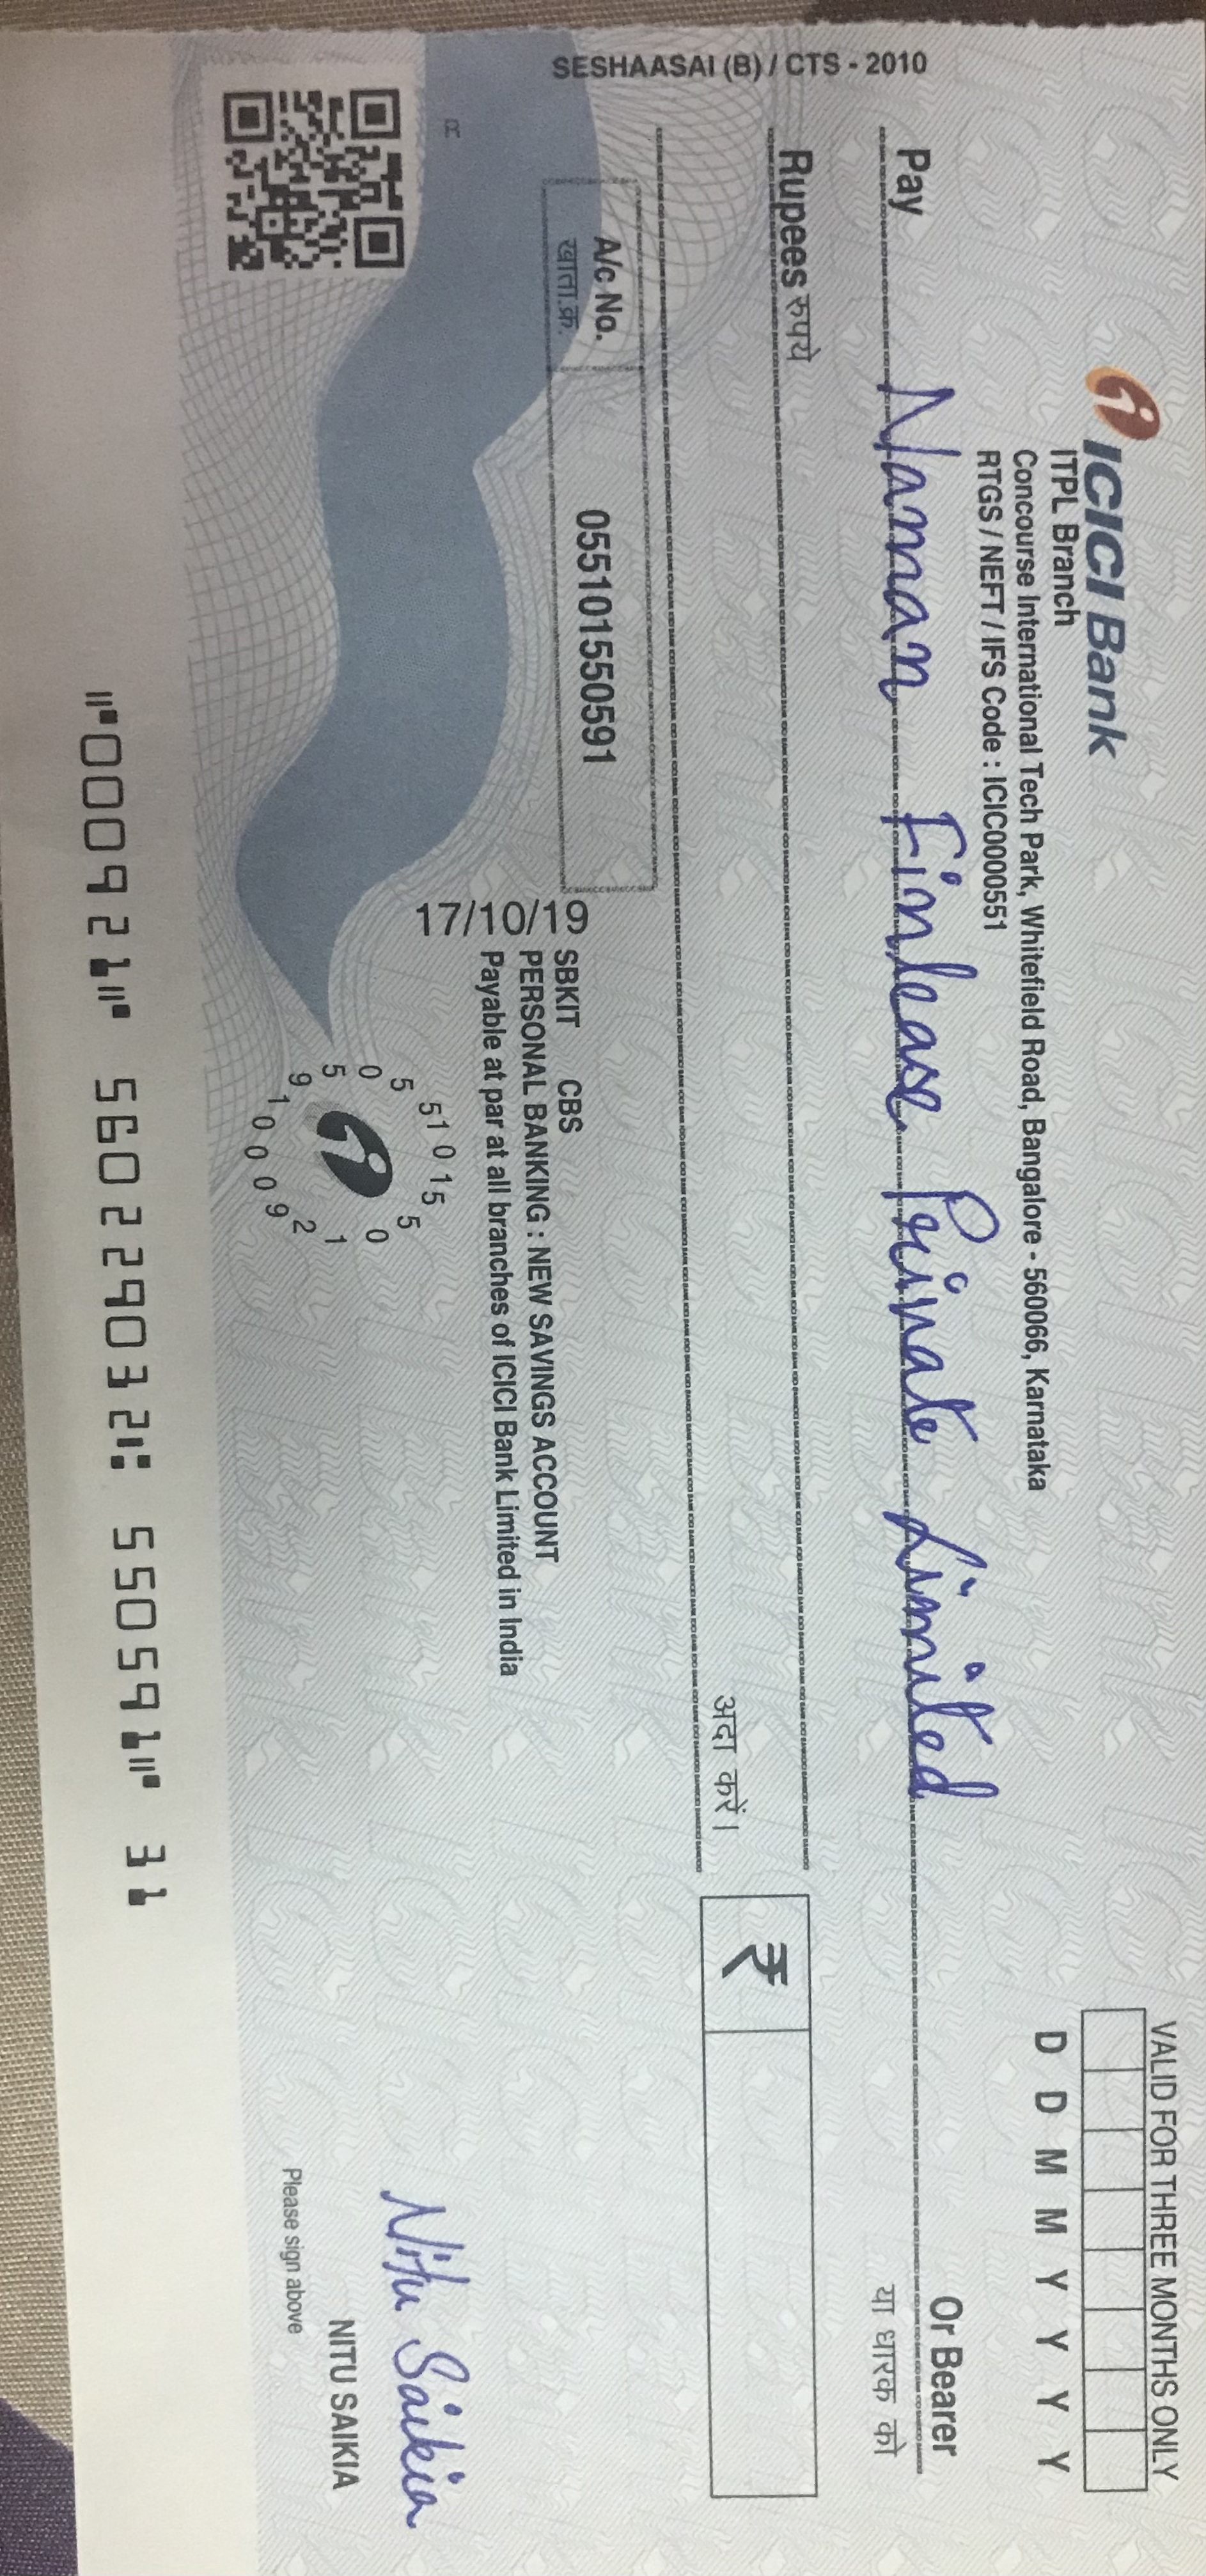 ICICI Bank
ITPL Branch
Concourse International Tech Park, Whitefield Road, Bangalore - 560066, Karnataka
RTGS / NEFT / IFS Code : ICIC0000551
VALID FOR THREE MONTHS ONLY
D D M M Y Y Y Y
Pay Naman Finlease Private Limited Or Bearer
या धारक को
Rupees रुपये
अदा करें। ₹
A/c No. 055101550591
खाता.क्र.
SESHAASAI (B) / CTS - 2010
17/10/19
SBKIT CBS
PERSONAL BANKING : NEW SAVINGS ACCOUNT
Payable at par at all branches of ICICI Bank Limited in India
055101550591000921
Nitu Saikia
NITU SAIKIA
Please sign above
⑈000921⑈ 560229032⑆ 550591⑈ 31